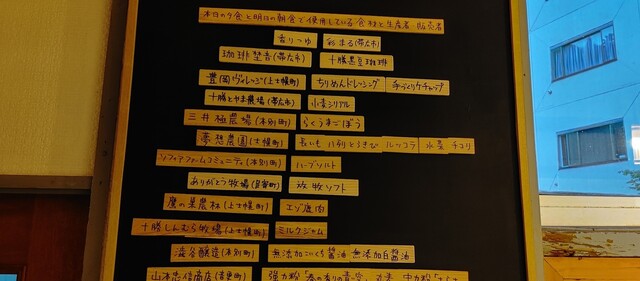 本日の夕食と明日の朝食で使用している食材と生産者・販売者
香りつゆ 彩まる(帯広市)
珈琲 埜音(帯広市) 十勝黒豆珈琲
豊岡ヴィレッジ(上士幌町) ちりめんドレッシング 手づくりケチャップ
十勝とやま農場(帯広市) 小麦シリアル
三井極農場(本別町) らくうまごぼう
夢想農園(士幌町) 長いも 八列とうきび ルッコラ 水菜 チコリ
ソフィアファームコミュニティ(本別町) ハーブソルト
ありがとう牧場(足寄町) 放牧ソフト
鷹の巣農林(上士幌町) エゾ鹿肉
十勝しんむら牧場(上士幌町) ミルクジャム
渋谷醸造(本別町) 無添加こいくち醤油 無添加白醤油
山本忠信商店(音更町) 強力粉「春の香りの青い空」 中力粉